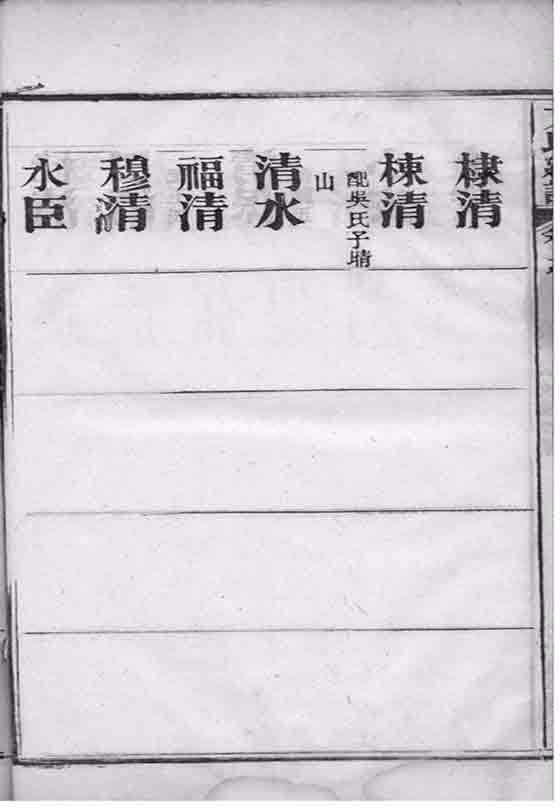 棣清
棟清
配吳氏子晴
山
清水
福清
穆清
水臣